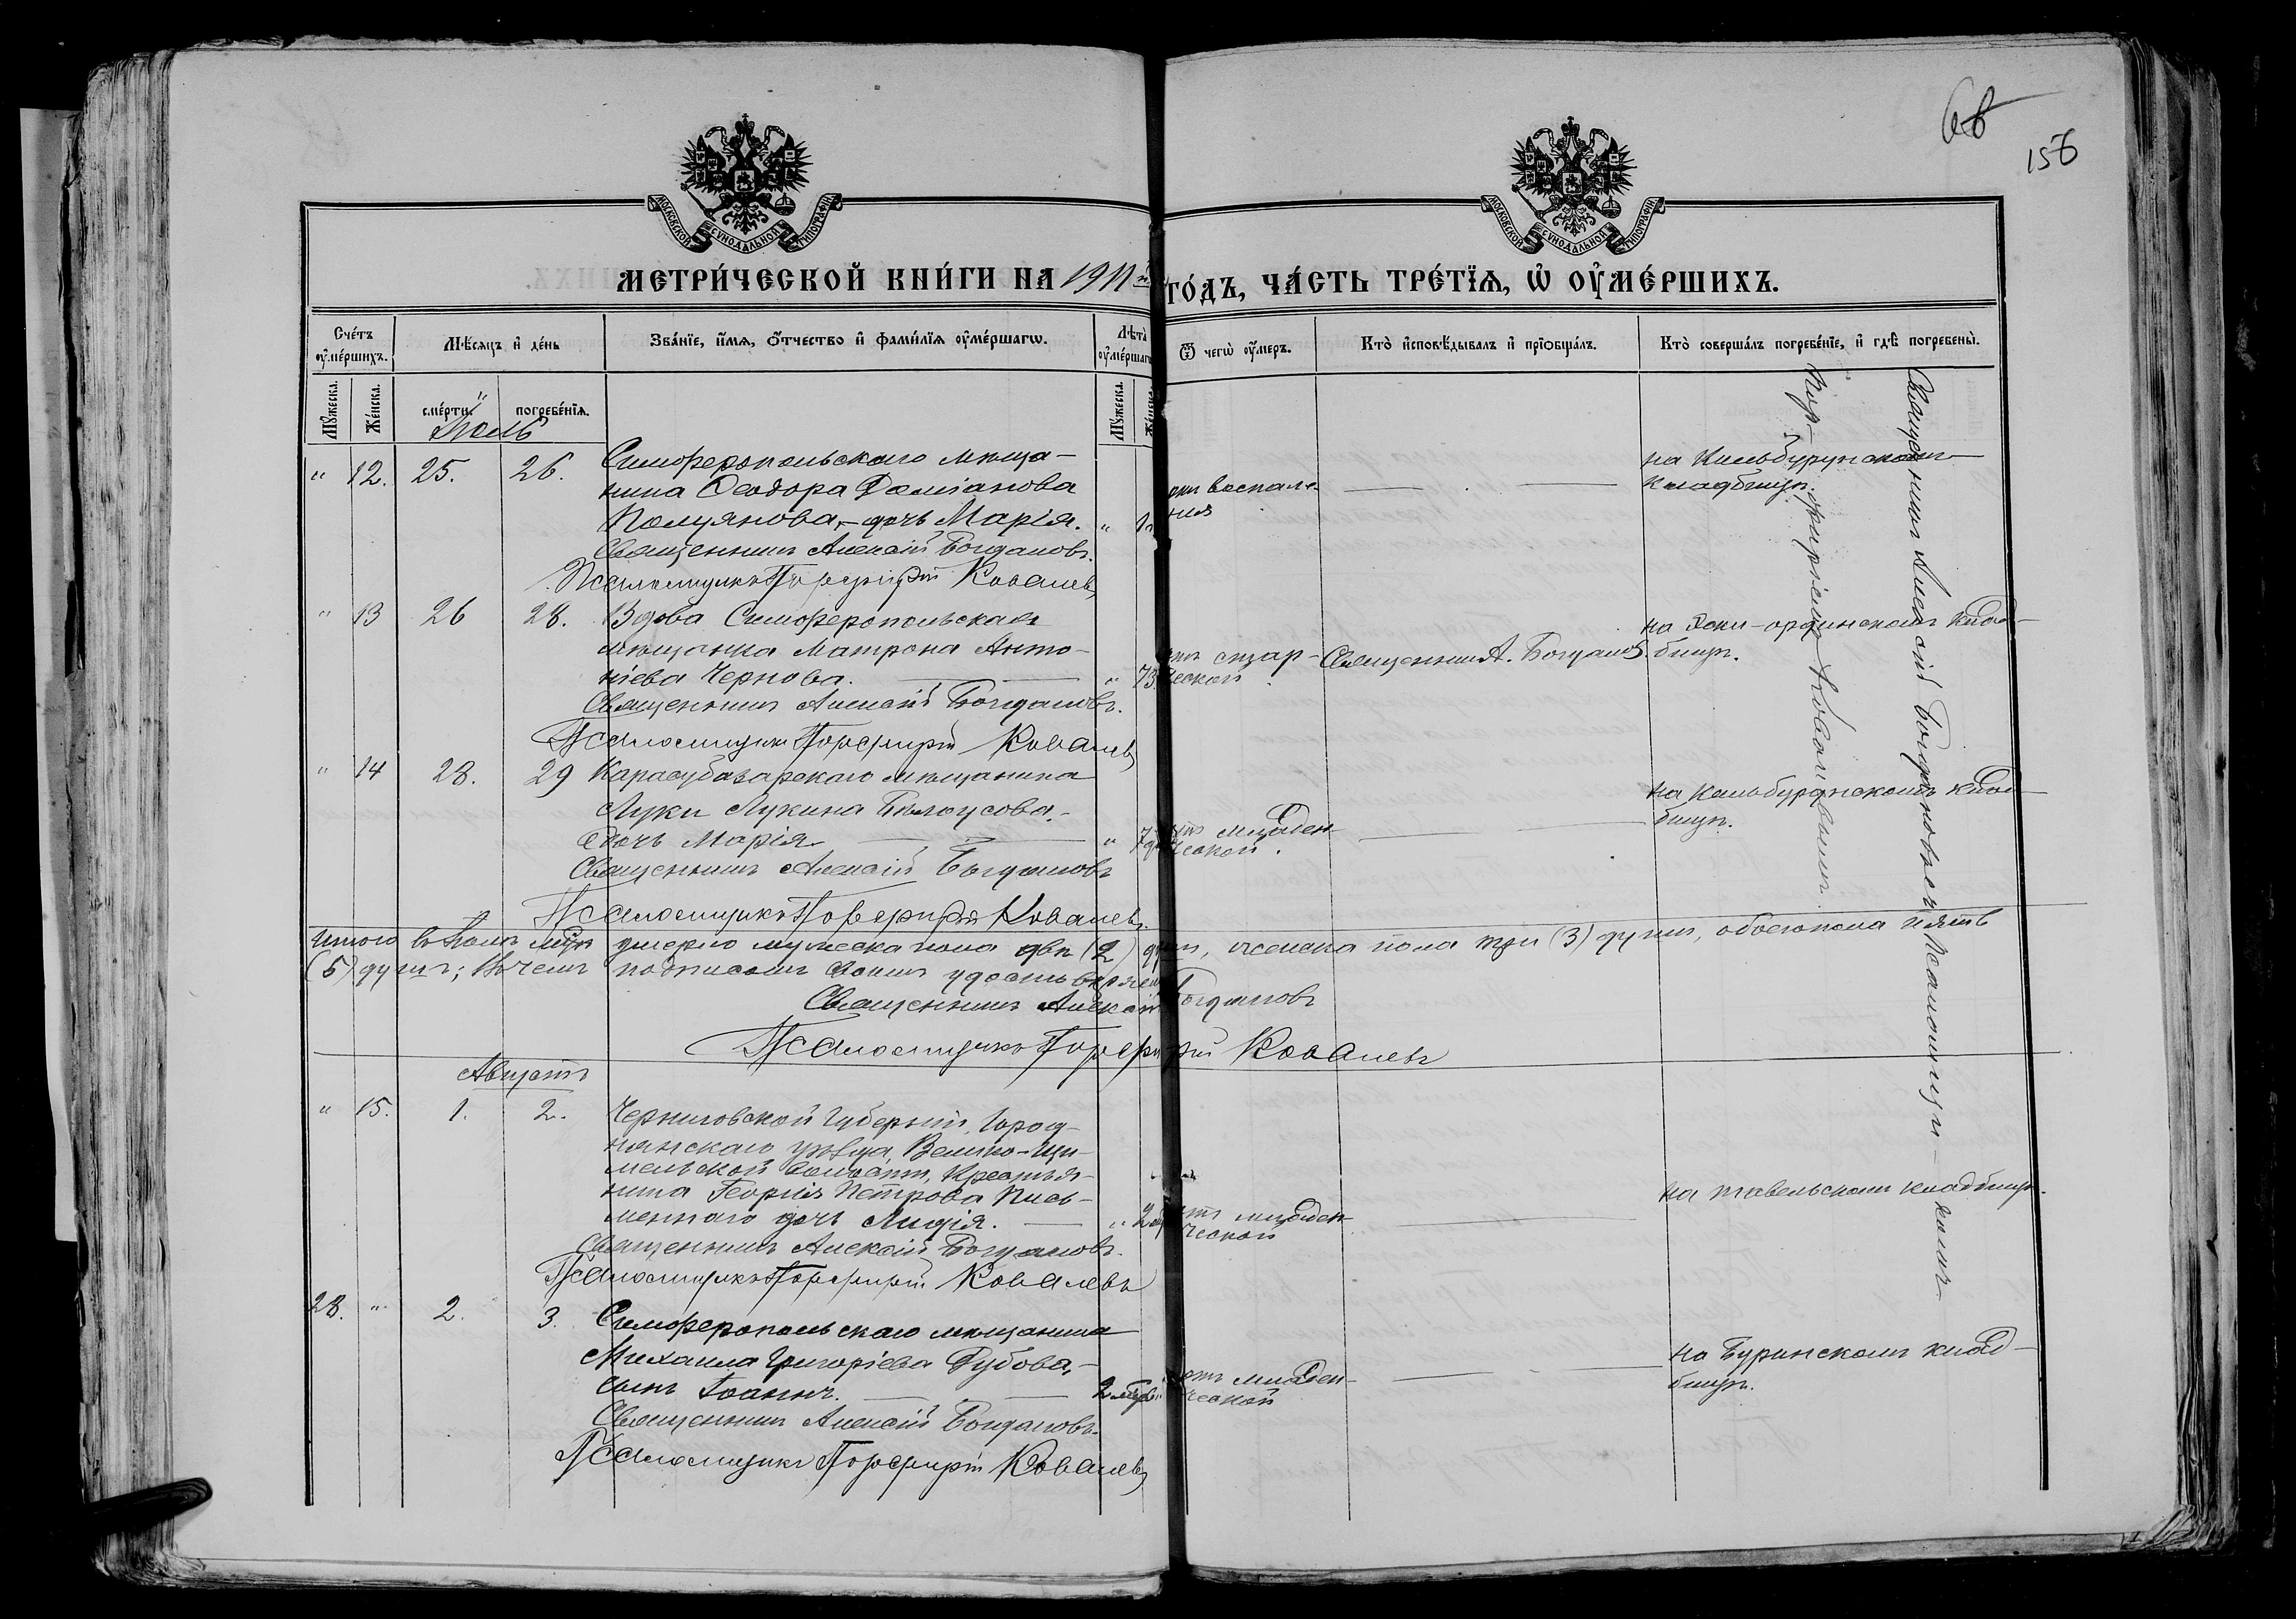 68
158
МОСКОВСКОЙ СѴНОДАЛЬНОЙ ТИПОГРАФІИ
МОСКОВСКОЙ СѴНОДАЛЬНОЙ ТИПОГРАФІИ
МЕТРИ́ЧЕСКОЙ КНИ́ГИ НА 1911 й ГО́ДЪ, ЧА́СТЬ ТРЕ́ТІѦ, Ѡ҆ ОУ҆МЕ́РШИХЪ.
Сче́тъ оу҆ме́ршихъ.
Мѣ́сяцъ и҆ де́нь
Зва́нїе, и҆́мѧ, ѻ҆́тчество и҆ фами́лїѧ оу҆ме́ршагѡ.
Лѣта̀ оу҆ме́ршагѡ
Ѿ чегѡ̀ оу҆́меръ.
Кто̀ и҆сповѣ́дывалъ и҆ прїобща́лъ.
Кто̀ соверша́лъ погребе́нїе, и҆ гдѣ̀ погребены̀.
Мꙋ́жеска. Же́нска. сме́рти. погребе́нїѧ. Мꙋ́жеска.
Іюль
" 12. 25. 26. Симферопольскаго мѣща-
нина Ѳеодора Даміанова
Полуянова,- дочь Марія. "
Священникъ Алексій Богдановъ.
Псаломщикъ Порфирій Ковалевъ
отъ воспале-
нія
на Кильбурунскомъ
кладбищѣ.
" 13 26 28. Вдова Симферопольская
мѣщанка Матрона Анто-
ніева Чернова. " 73
Священникъ Алексій Богдановъ.
Псаломщикъ Порфирій Ковалевъ
отъ стар-
ческой
Священникъ А. Богдановъ.
на Эски-ординскомъ клад-
бищѣ.
" 14 28. 29 Карасубазарскаго мѣщанина
Луки Лукина Бѣлоусова,-
дочь Марія. " 7
Священникъ Алексій Богдановъ
Псаломщикъ Порфирій Ковалевъ.
отъ младен-
ческой.
на Кильбурунскомъ клад-
бищѣ.
Итого въ Іюлѣ м-цѣ умерло мужеска пола двѣ (2) душ, женска пола три (3) души, обоего пола пять
(5) душъ; въ чемъ подписомъ своимъ удостовѣряемъ
Священникъ Алексій Богдановъ
Псаломщикъ Порфирій Ковалевъ
Августъ
" 15. 1. 2. Черниговской губерніи, Город-
нянскаго уѣзда Велико-Щи-
мельской волости, Крестья-
нина Георгія Петрова Пись-
меннаго дочь Лидія. " 2
Священникъ Алексій Богдановъ.
Псаломщикъ Порфирій Ковалевъ
отъ младен-
ческой
на тавельскомъ кладбищѣ.
28. " 2. 3. Симферопольскаго мѣщанина
Михаила Григоріева Дубова,-
сынъ Іоаннъ. 2
Священникъ Алексій Богдановъ.
Псаломщикъ Порфирій Ковалевъ
отъ младен-
ческой
на Бурунскомъ клад-
бищѣ.
Священникъ Алексій Богдановъ съ Псаломщи-комъ
Пор-фиріемъ Ковалевымъ.